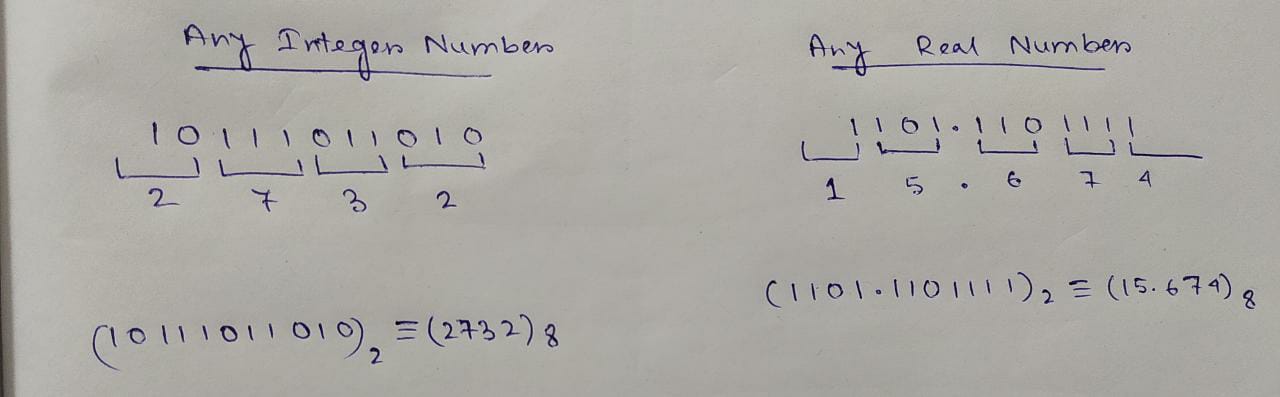 Any Integer Number
10111011010
2 7 3 2
(10111011010)2 ≡ (2732)8
Any Real Number
1101.1101111
1 5 . 6 7 4
(1101.1101111)2 ≡ (15.674)8